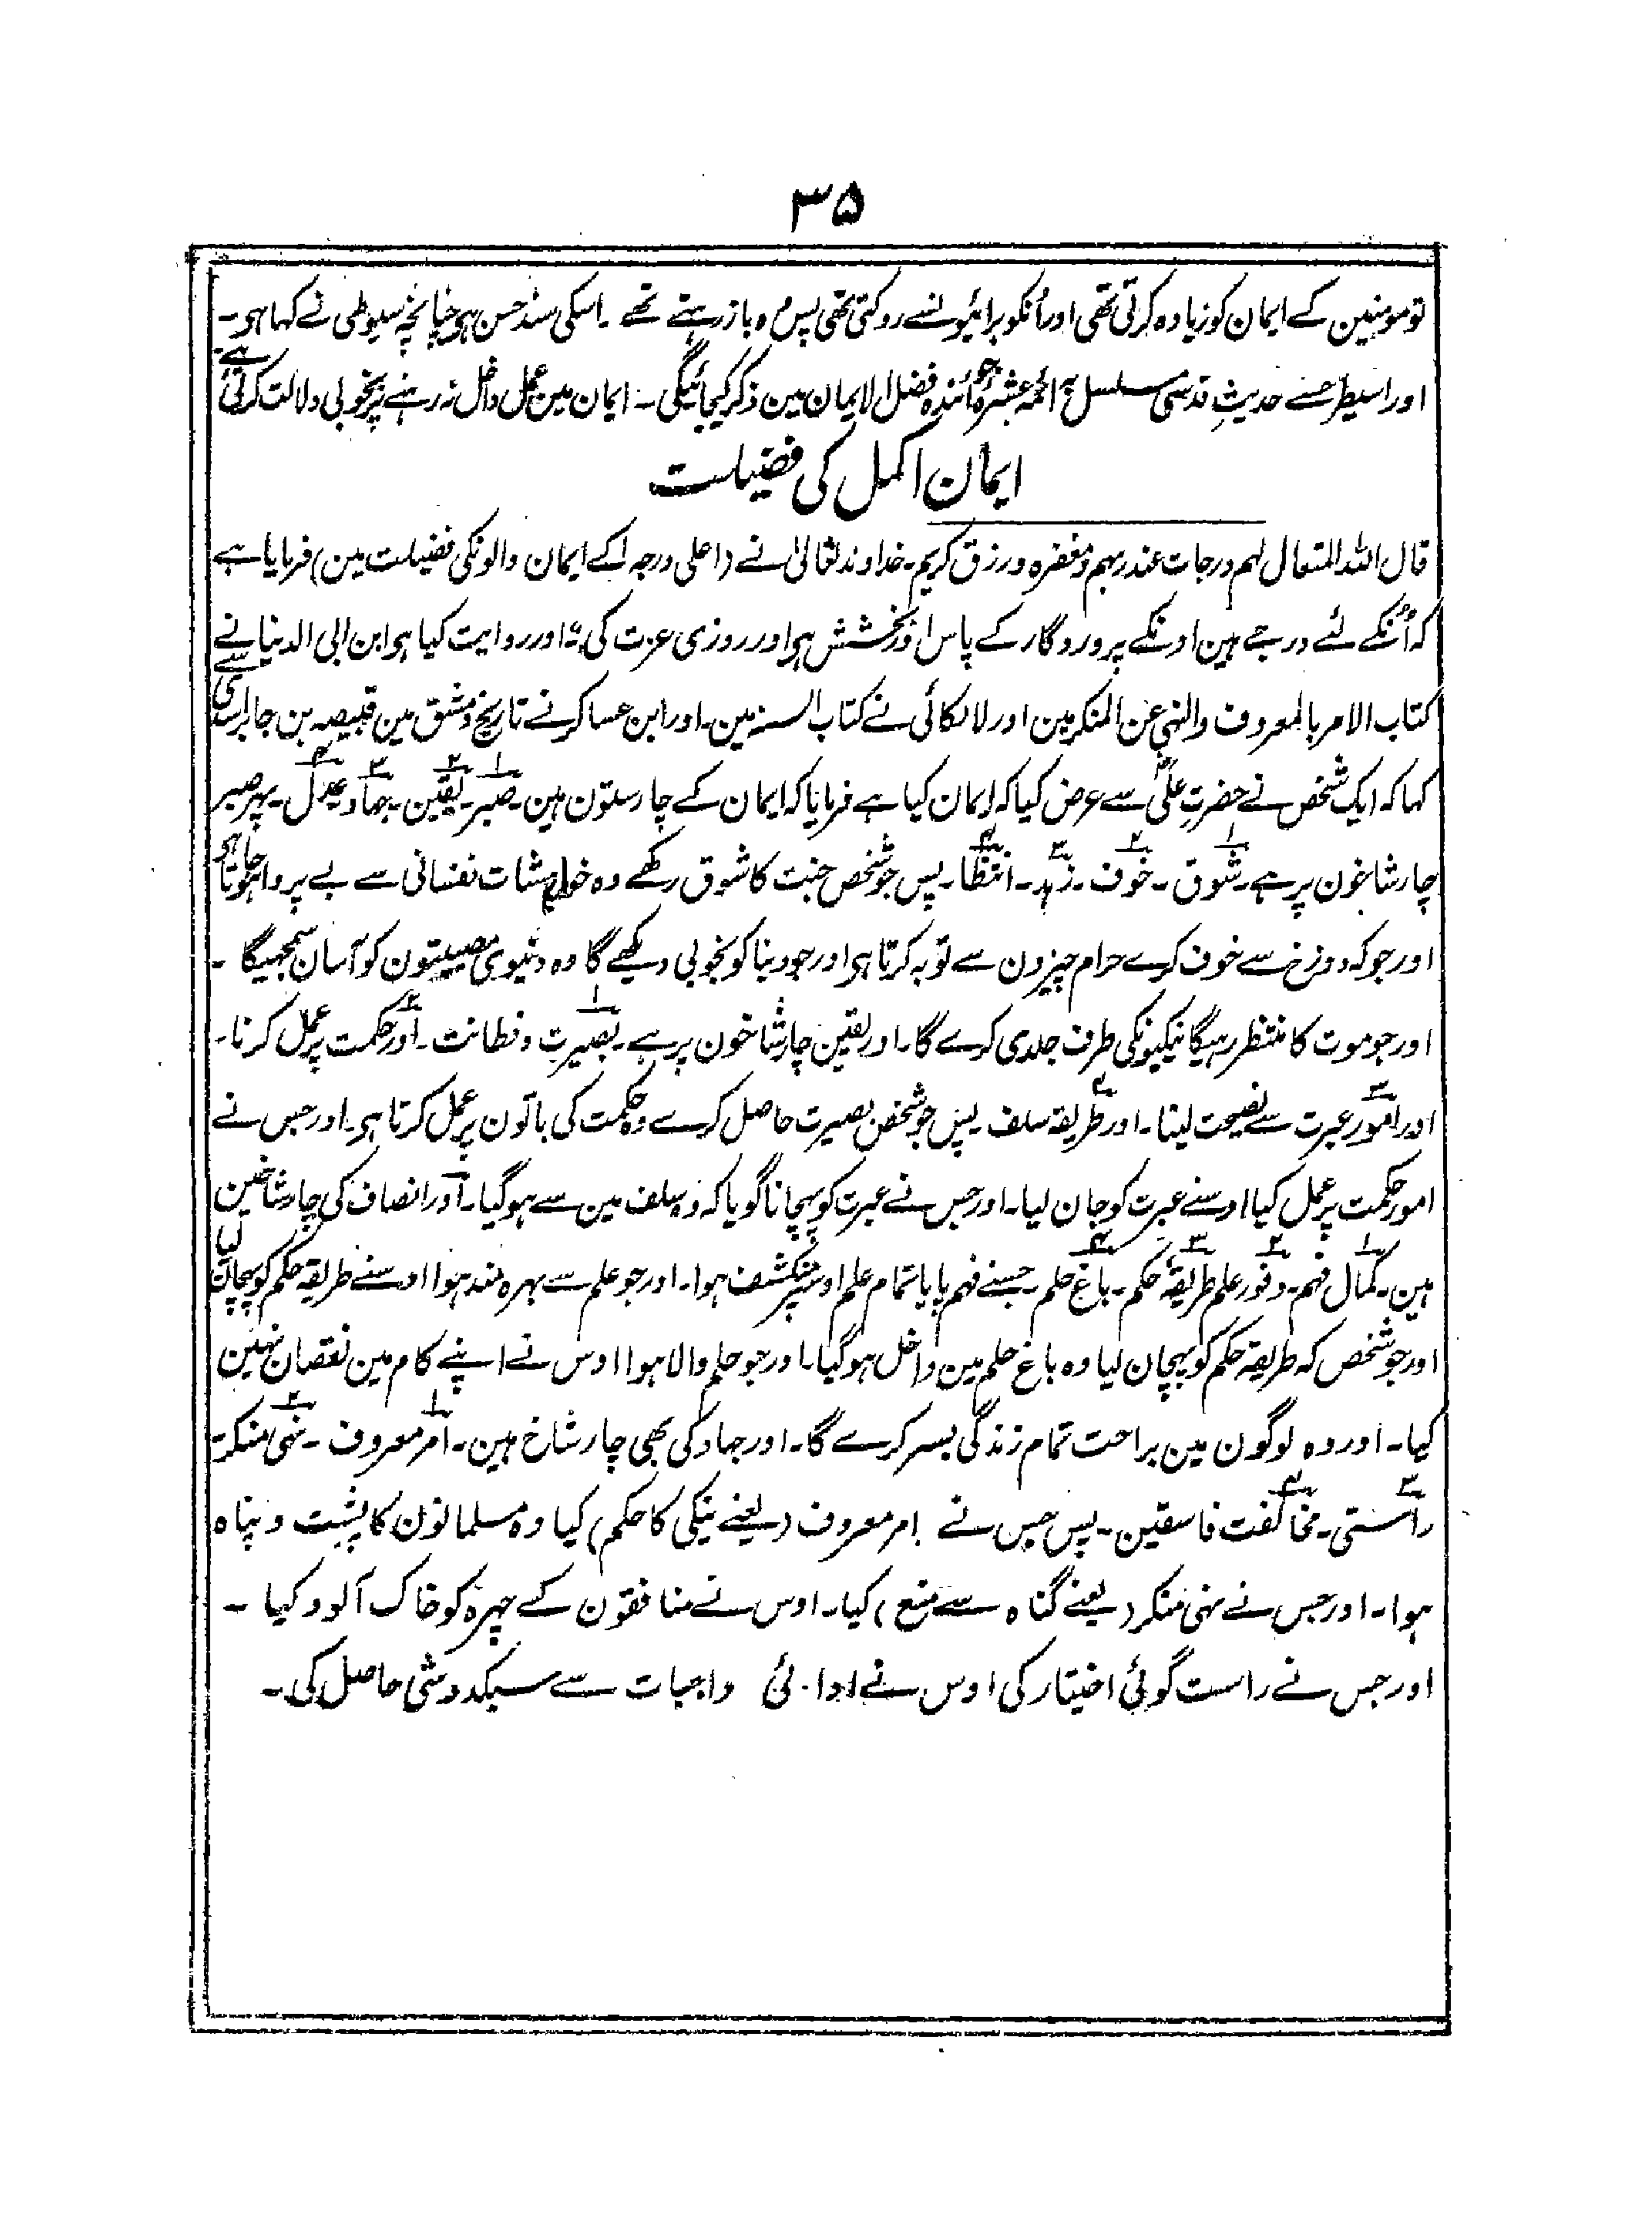 ۳۵
تو مومنین کے ایمان کو زیادہ کرتی تھی اور اُنکو برائیونسے روکتی تھی پس وہ باز رہتے تھے ۔ اسکی سند حسن ہی چنانچہ سیوطی نے کہا ہی ۔
اور اسیطرحسے حدیثِ قدسی مسلسل بہ ائمہ عشرہ جو آئندہ فضل الایمان مین ذکر کیجائیگی ۔ ایمان مین عمل داخل نہ رہنے پر بخوبی دلالت کرتی ہے
ایمان اکمل کی فضیلت
قال اللہ المتعال لہم درجات عند ربہم ومغفرہ ورزق کریم ۔ خداوند تعالیٰ نے (اعلی درجہ کے ایمان والونکی فضیلت مین) فرمایا ہے
کہ اُنکے لئے درجے ہین اونکے پروردگار کے پاس اور بخشش ہی اور روزی عزت کی ؛ اور روایت کیا ہی ابن ابی الدنیا نے
کتاب الامر بالمعروف والنہی عن المنکر مین اور لالکائی نے کتاب السنہ مین ۔ اور ابن عساکر نے تاریخ دمشق مین قبیصہ بن جابر اسدی سے
کہا کہ ایک شخص نے حضرتِ علیؓ سے عرض کیا کہ ایمان کیا ہے فرمایا کہ ایمان کے چار ستون ہین ۔ ۱ صبر ۔ ۲ یقین ۔ ۳ جہاد ۴ عدل ۔ پہر صبر
چار شاخون پر ہے ۔ ۱ شوق ۔ ۲ خوف ۔ ۳ زہد ۔ ۴ انتظار ۔ پس جو شخص جنت کا شوق رکھے وہ خواہشات نفسانی سے بے پروا ہو جاتا ہی
اور جو کہ دوزخ سے خوف کرے حرام چیزون سے توبہ کرتا ہی اور جو دنیا کو بخوبی دیکھے گا وہ دنیوی مصیبتون کو آسان سمجہیگا ۔
اور جو موت کا منتظر رہیگا نیکیونکی طرف جلدی کرے گا ۔ اور یقین چار شاخون پر ہے ۔ ۱ بصیرت و فطانت ۔ ۲ اور حکمت پر عمل کرنا ۔
۳ اور امور عبرت سے نصیحت لینا ۔ ۴ اور طریقہ سلف پس جو شخص بصیرت حاصل کرے وہ حکمت کی باتون پر عمل کرتا ہی ۔ اور جس نے
امور حکمت پر عمل کیا اوسنے عبرت کو جان لیا ۔ اور جس نے عبرت کو پہچانا گویا کہ وہ سلف مین سے ہو گیا ۔ اور انصاف کی چار شاخین
ہین ۔ ۱ کمال فہم ۔ ۲ وفور علم ۳ طریقۂ حکم ۔ ۴ باغ حلم ۔ جسنے فہم پایا تمام علم اوسپر منکشف ہوا ۔ اور جو علم سے بہرہ مند ہوا اوسنے طریقہ حکم کو پہچان لیا
اور جو شخص کہ طریقہ حکم کو پہچان لیا وہ باغ حلم مین داخل ہو گیا ۔ اور جو حلم والا ہوا اوس نے اپنے کام مین نقصان نہین
کیا ۔ اور وہ لوگون مین براحت تمام زندگی بسر کرے گا ۔ اور جہاد کی بھی چار شاخ ہین ۔ ۱ امر معروف ۔ ۲ نہی منکر ۔
۳ راستی ۔ ۴ مخالفت فاسقین ۔ پس جس نے امر معروف (یعنے نیکی کا حکم) کیا وہ مسلمانون کا پشت و پناہ
ہوا ۔ اور جس نے نہی منکر (یعنے گناہ سے منع) کیا ۔ اوس نے منافقون کے چہرہ کو خاک آلود کیا ۔
اور جس نے راست گوئی اختیار کی اوس نے ادائی واجبات سے سبکدوشی حاصل کی ۔